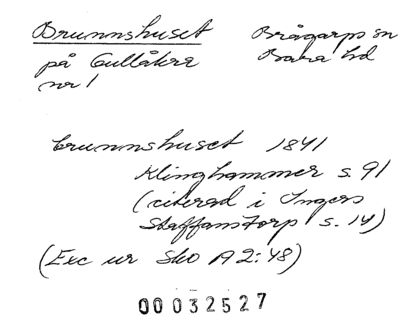 Brunnshuset Brågarps sn
på Gullåkra Bara hd
nr 1
brunnshuset 1841
Klinghammer s. 91
(citerad i Ingers
Staffanstorp s. 14)
(Exc ur Sko A 2:48)
00032527